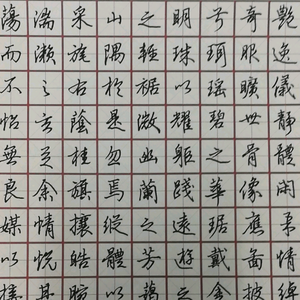 艷逸儀靜體閑柔情綽
奇服曠世骨像應圖披
兮珥瑤碧之華琚戴金
明珠以耀軀踐遠遊之
之輕裾微幽蘭之芳藹
山隅於是忽焉縱體以
采旄右蔭桂旗攘皓
湍瀨之玄芝余情悅其
蕩而不怡無良媒以